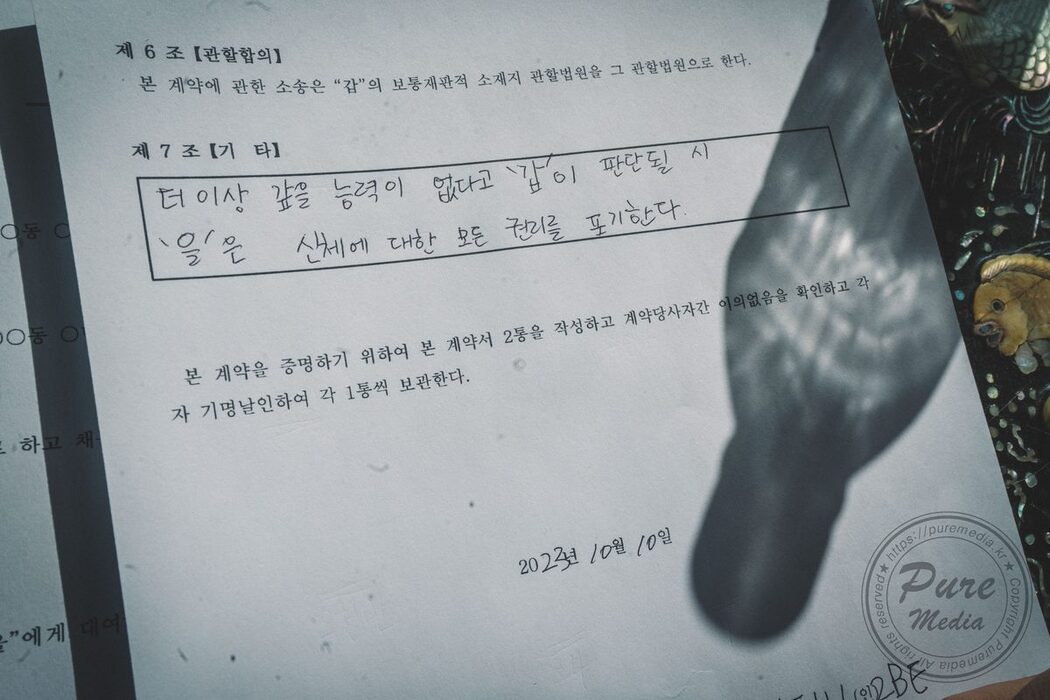 제 6 조【관할합의】
본 계약에 관한 소송은 “갑”의 보통재판적 소재지 관할법원을 그 관할법원으로 한다.
제 7 조【기 타】
더 이상 갚을 능력이 없다고 '갑'이 판단될 시
'을'은 신체에 대한 모든 권리를 포기한다.
본 계약을 증명하기 위하여 본 계약서 2통을 작성하고 계약당사자간 이의없음을 확인하고 각
자 기명날인하여 각 1통씩 보관한다.
2023년 10월 10일
○동
○○동
하고 채
을”에게 대여
Pure Media
https://puremedia.kr
Copyright Puremedia All rights reserved